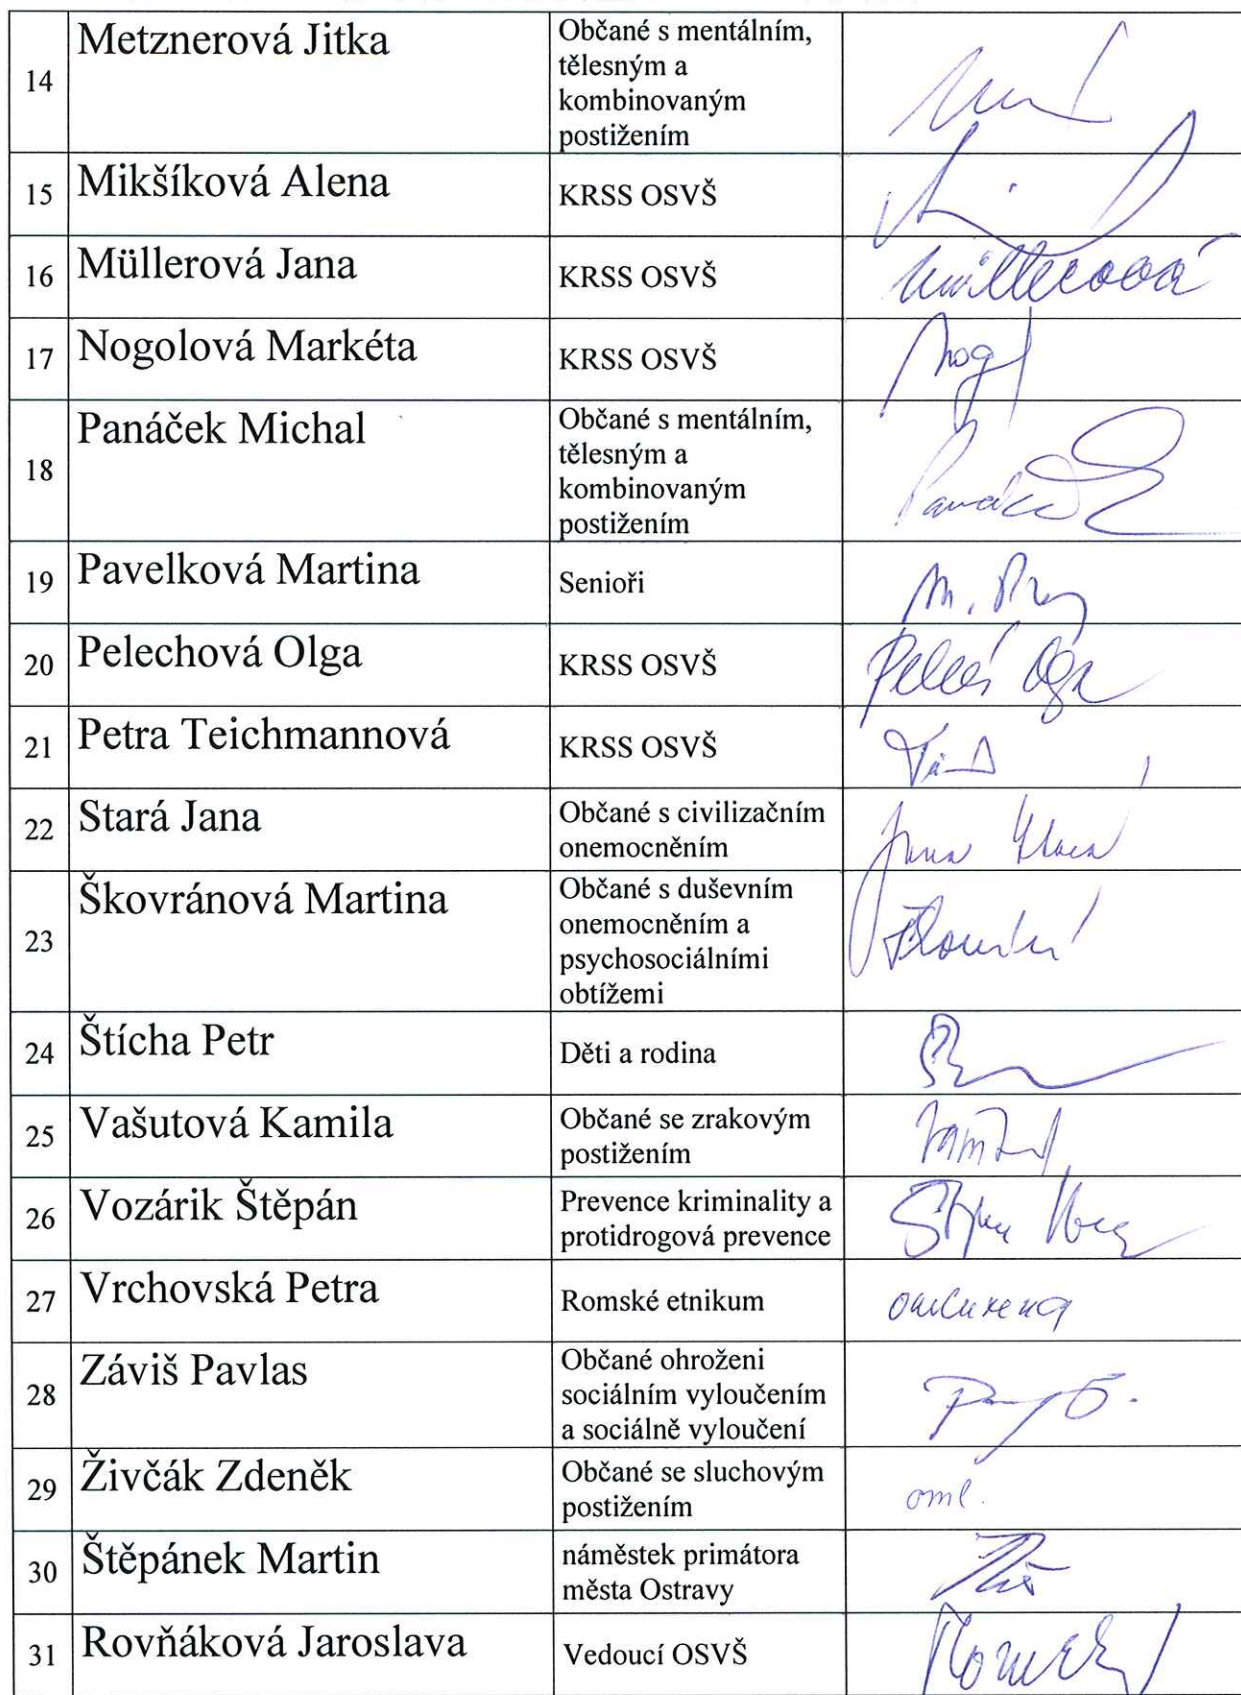 14 Metznerová Jitka Občané s mentálním,
tělesným a
kombinovaným
postižením
15 Mikšíková Alena KRSS OSVŠ
16 Müllerová Jana KRSS OSVŠ Müllerová
17 Nogolová Markéta KRSS OSVŠ Nog
18 Panáček Michal Občané s mentálním,
tělesným a
kombinovaným
postižením
19 Pavelková Martina Senioři
20 Pelechová Olga KRSS OSVŠ
21 Petra Teichmannová KRSS OSVŠ
22 Stará Jana Občané s civilizačním Jana Stará
onemocněním
23 Škovránová Martina Občané s duševním
onemocněním a
psychosociálními
obtížemi
24 Štícha Petr Děti a rodina
25 Vašutová Kamila Občané se zrakovým
postižením
26 Vozárik Štěpán Prevence kriminality a
protidrogová prevence
27 Vrchovská Petra Romské etnikum omluvena
28 Záviš Pavlas Občané ohroženi
sociálním vyloučením
a sociálně vyloučení
29 Živčák Zdeněk Občané se sluchovým
postižením oml.
30 Štěpánek Martin náměstek primátora
města Ostravy
31 Rovňáková Jaroslava Vedoucí OSVŠ